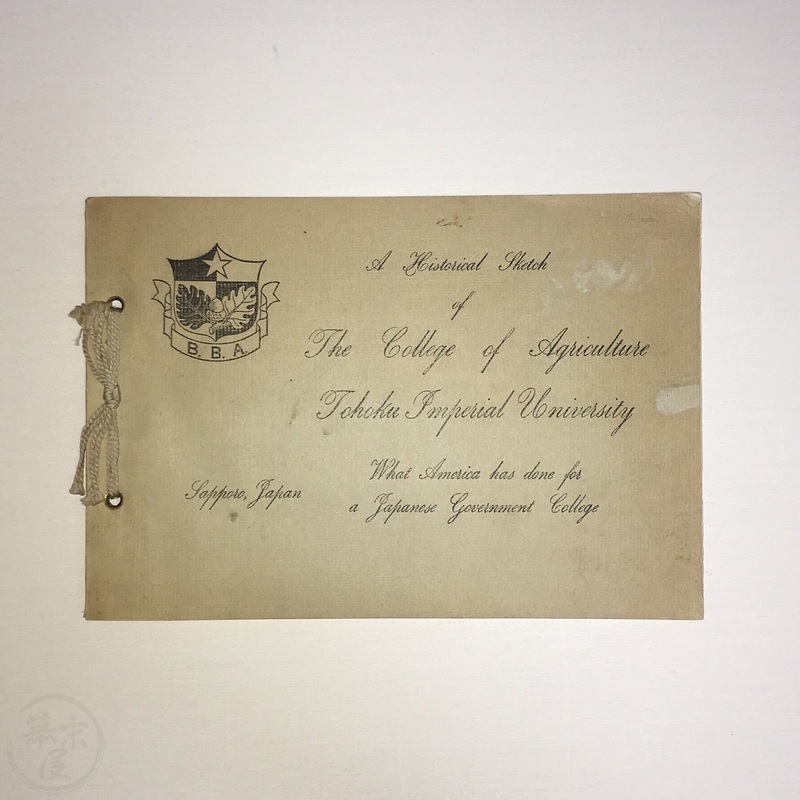 A Historical Sketch
of
The College of Agriculture
Tohoku Imperial University
What America has done for
a Japanese Government College
Sapporo, Japan
B. B. A.
幕末屋